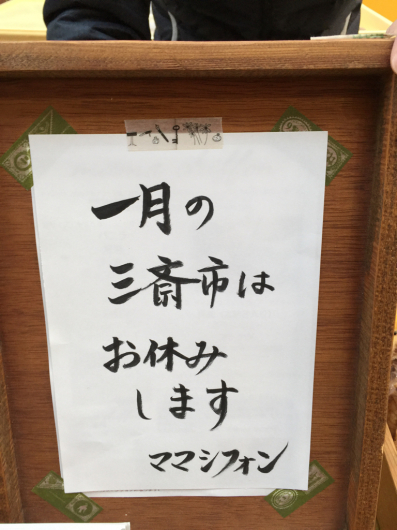 一月の
三斎市は
お休み
します
ママシフォン